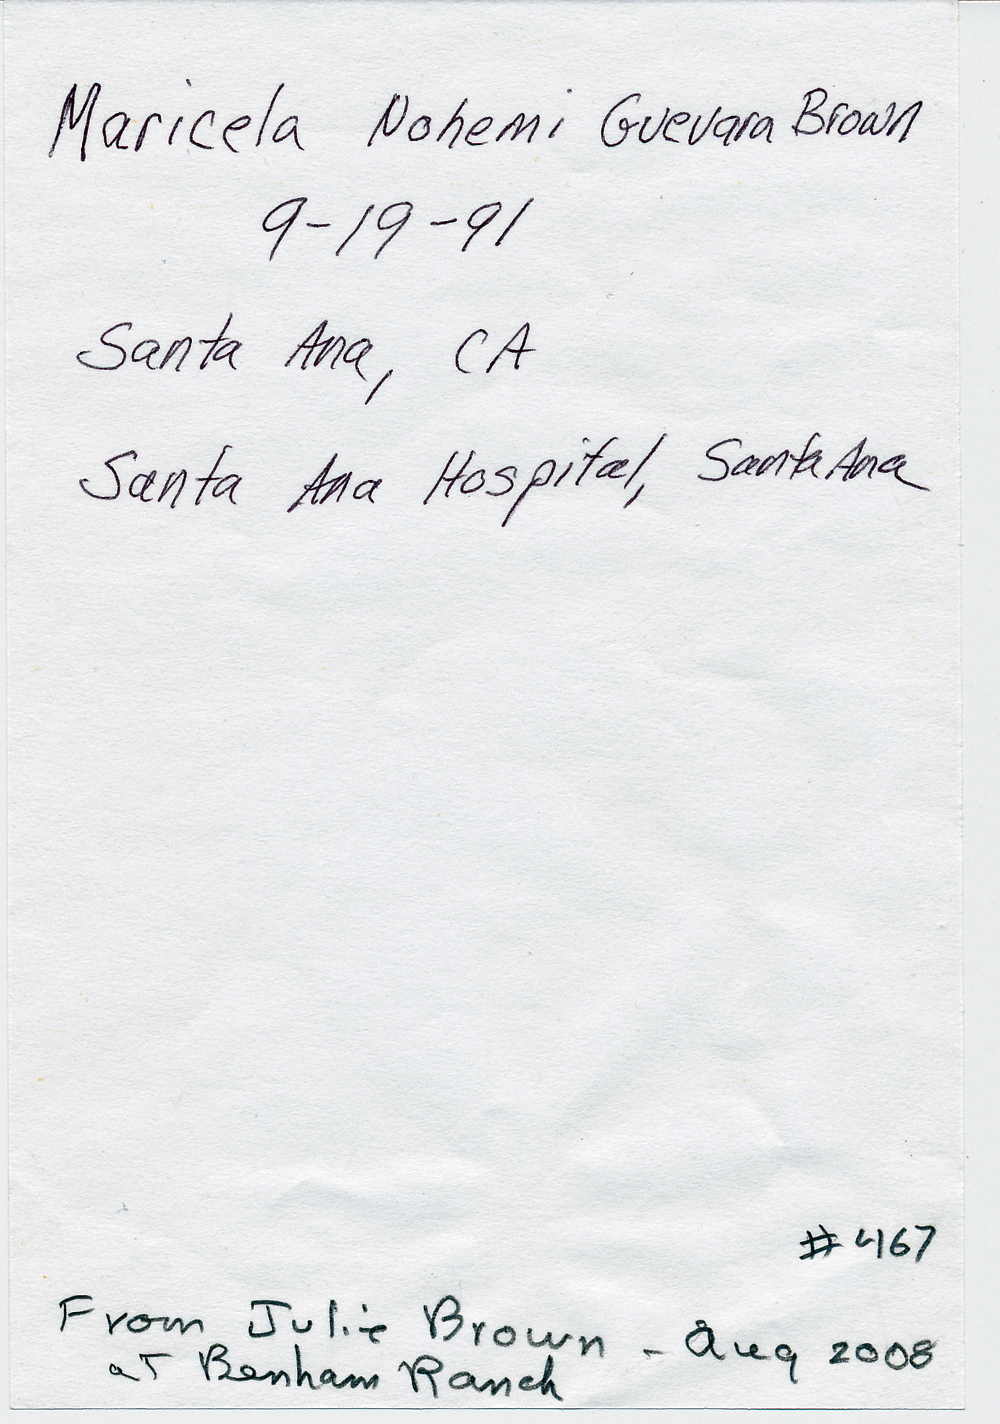 Maricela Nohemi Guevara Brown
9-19-91
Santa Ana, CA
Santa Ana Hospital, Santa Ana
#467
From Julie Brown - Aug 2008
at Benham Ranch